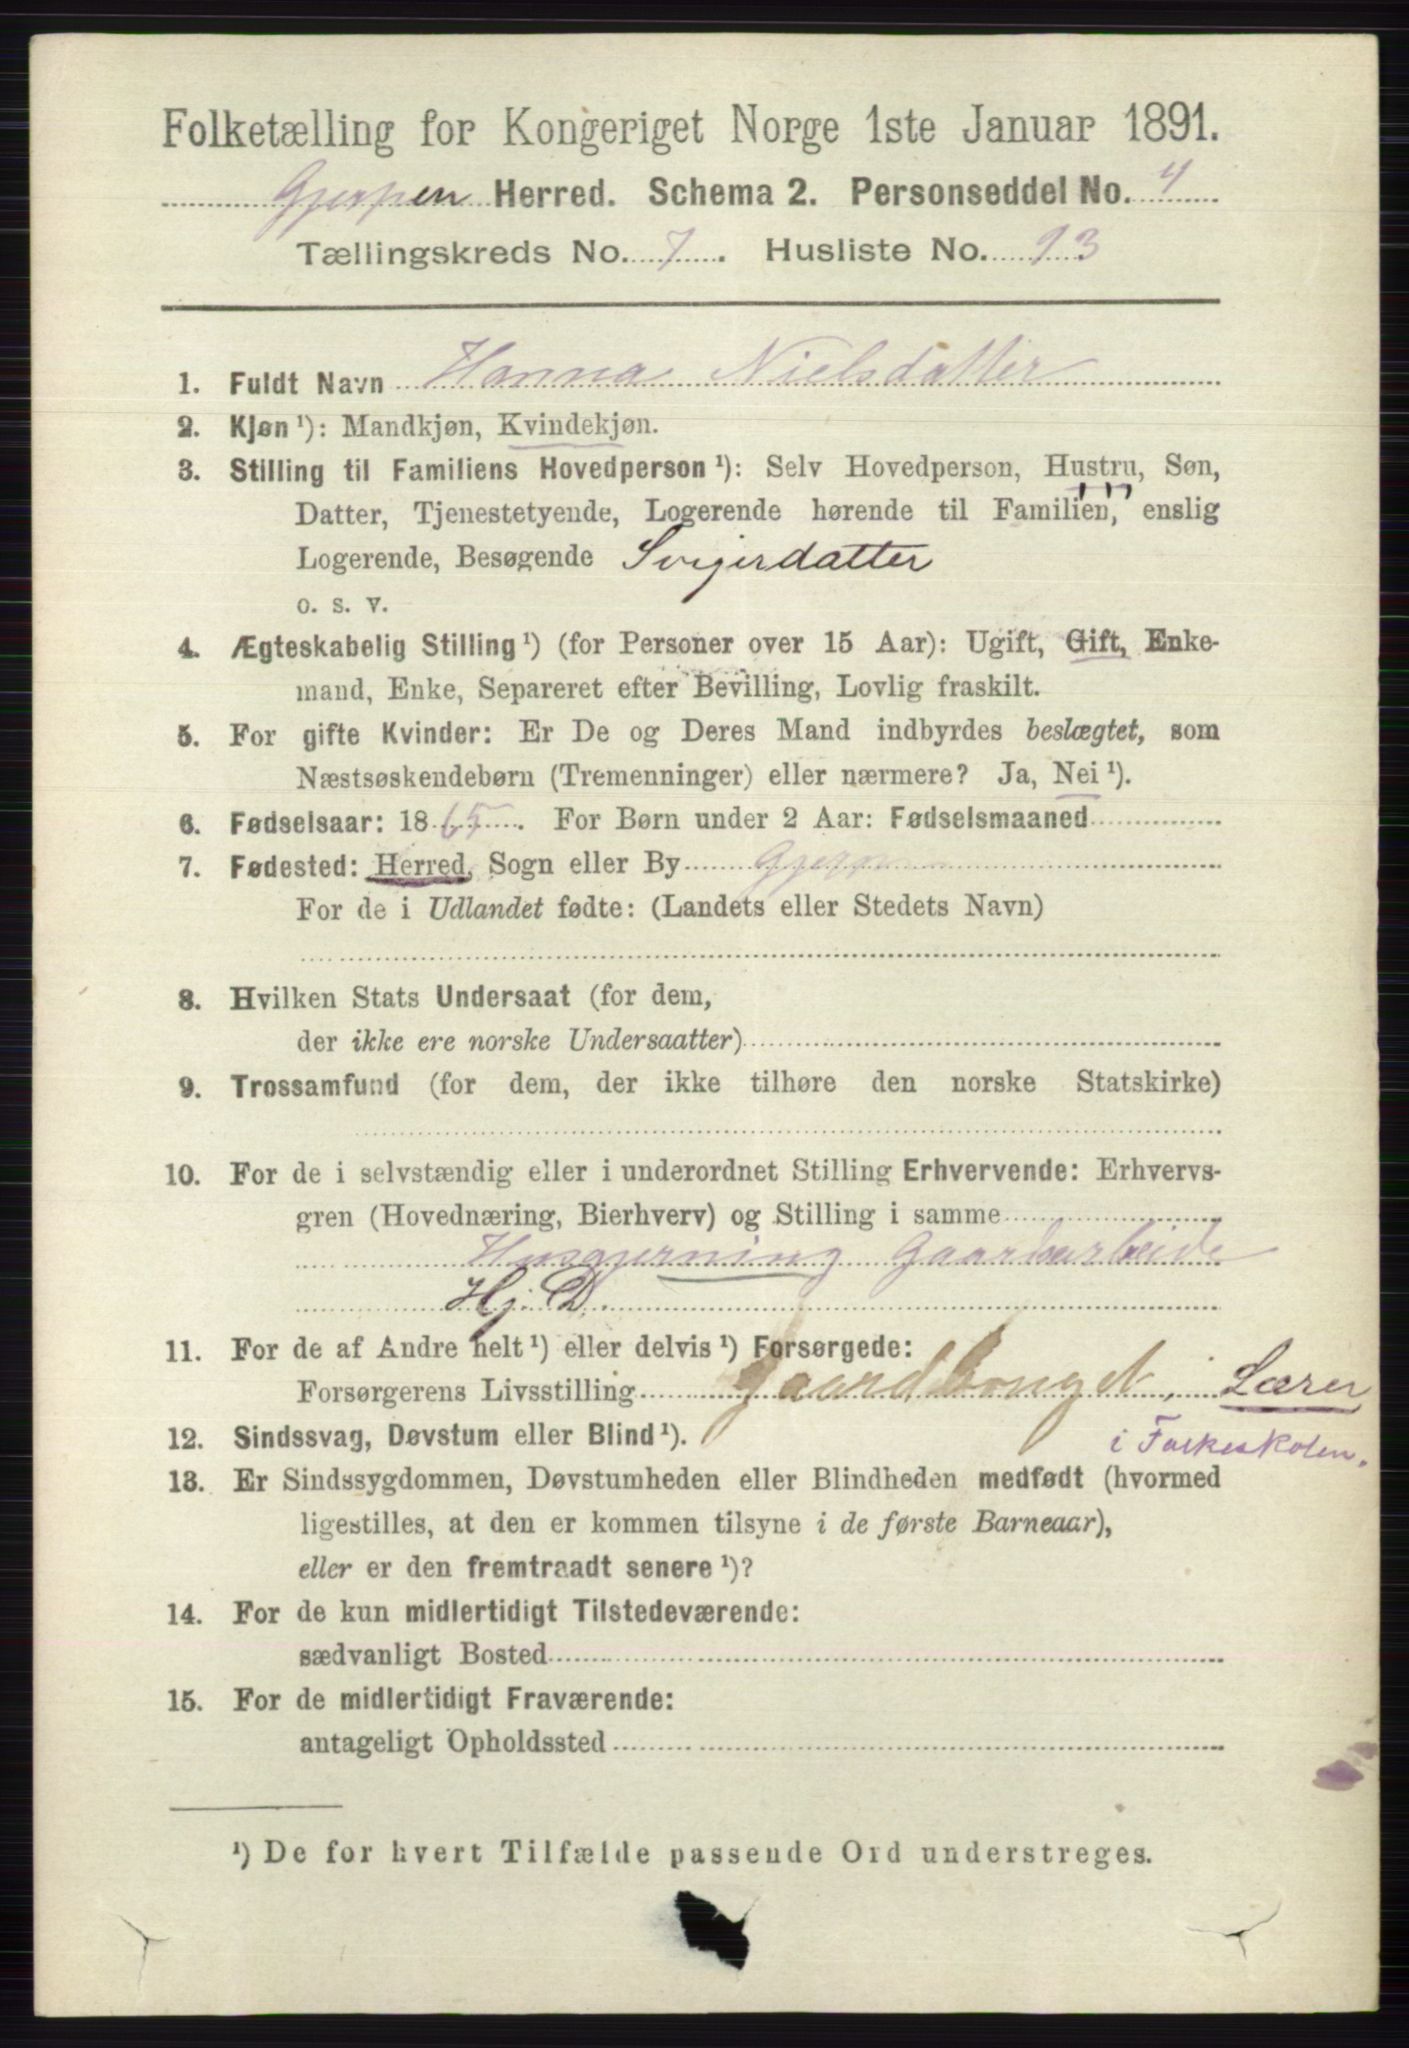 Folketælling for Kongeriget Norge 1ste Januar 1891.
Gjerpen Herred. Schema 2. Personseddel No. 4
Tællingskreds No. 7. Husliste No. 93
1. Fuldt Navn Hanna Nielsdatter
2. Kjøn ¹): Mandkjøn, Kvindekjøn.
3. Stilling til Familiens Hovedperson ¹): Selv Hovedperson, Hustru, Søn,
Datter, Tjenestetyende, Logerende hørende til Familien, enslig
Logerende, Besøgende Svigerdatter
o. s. v.
4. Ægteskabelig Stilling ¹) (for Personer over 15 Aar): Ugift, Gift, Enke-
mand, Enke, Separeret efter Bevilling, Lovlig fraskilt.
5. For gifte Kvinder: Er De og Deres Mand indbyrdes beslægtet, som
Næstsøskendebørn (Tremenninger) eller nærmere? Ja, Nei ¹).
6. Fødselsaar: 1865. For Børn under 2 Aar: Fødselsmaaned
7. Fødested: Herred, Sogn eller By Gjerpen
For de i Udlandet fødte: (Landets eller Stedets Navn)
8. Hvilken Stats Undersaat (for dem,
der ikke ere norske Undersaatter)
9. Trossamfund (for dem, der ikke tilhøre den norske Statskirke)
10. For de i selvstændig eller i underordnet Stilling Erhvervende: Erhvervs-
gren (Hovednæring, Bierhverv) og Stilling i samme
Husgjerning Gaardarbeide
Hj. D.
11. For de af Andre helt ¹) eller delvis ¹) Forsørgede:
Forsørgerens Livsstilling Lærer
i Folkeskolen.
12. Sindssvag, Døvstum eller Blind ¹).
13. Er Sindssygdommen, Døvstumheden eller Blindheden medfødt (hvormed
ligestilles, at den er kommen tilsyne i de første Barneaar),
eller er den fremtraadt senere ¹)?
14. For de kun midlertidigt Tilstedeværende:
sædvanligt Bosted
15. For de midlertidigt Fraværende:
antageligt Opholdssted
¹) De for hvert Tilfælde passende Ord understreges.